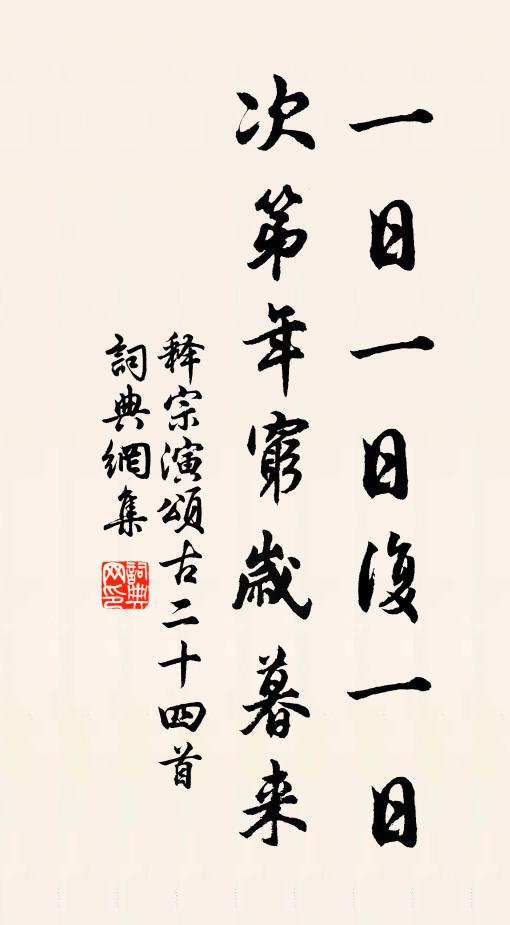 一日一日復一日
次第年窮歲暮来
释宗演頌古二十四首
詞典網集
詞典網印